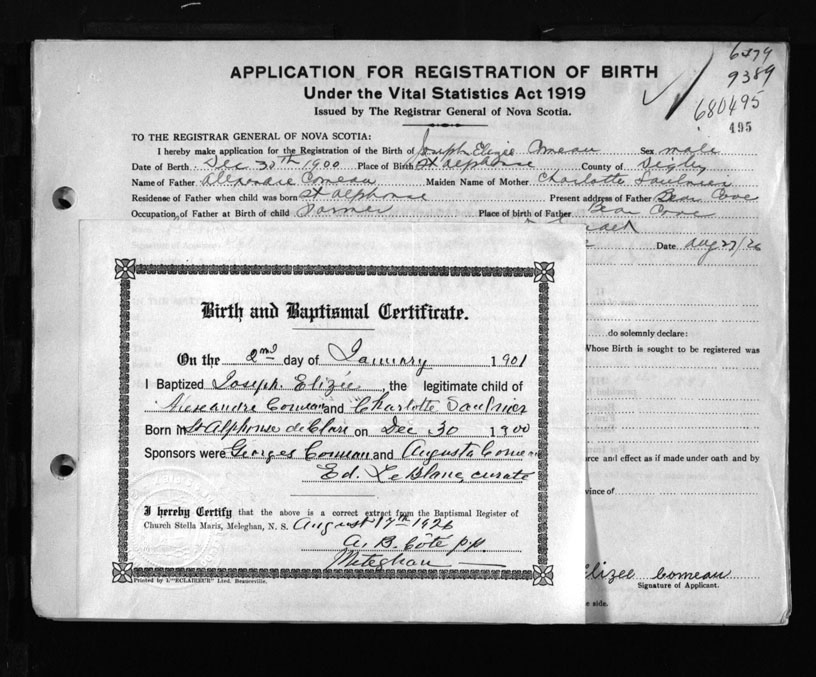 6379
9389
680495
495
APPLICATION FOR REGISTRATION OF BIRTH
Under the Vital Statistics Act 1919
Issued by The Registrar General of Nova Scotia.
TO THE REGISTRAR GENERAL OF NOVA SCOTIA:
I hereby make application for the Registration of the Birth of Joseph Elizée Comeau Sex male
Date of Birth Dec 30th 1900 Place of Birth St Alphonse County of Digby
Name of Father Alexandre Comeau Maiden Name of Mother Charlotte Saulnier
Residence of Father when child was born St Alphonse Present address of Father Bear Cove
Occupation, of Father at Birth of child Farmer Place of birth of Father Bear Cove
Date Aug 27/26
do solemnly declare:
Whose Birth is sought to be registered was
rce and effect as if made under oath and by
vince of
Elizee Comeau
Signature of Applicant.
e side.
Birth and Baptismal Certificate.
On the 2nd day of January 1901
I Baptized Joseph. Elizée, the legitimate child of
Alexandre Comeau and Charlotte Saulnier
Born in St Alphonse de Clare on Dec 30 1900
Sponsors were Georges Comeau and Augusta Comeau
Ed. LeBlanc, curate
I hereby Certify that the above is a correct extract from the Baptismal Register of
Church Stella Maris, Meteghan, N. S. August 17th 1926
A. B. Côté p.p.
Meteghan
Printed by L'"ECLAIREUR" Ltd. Beauceville.